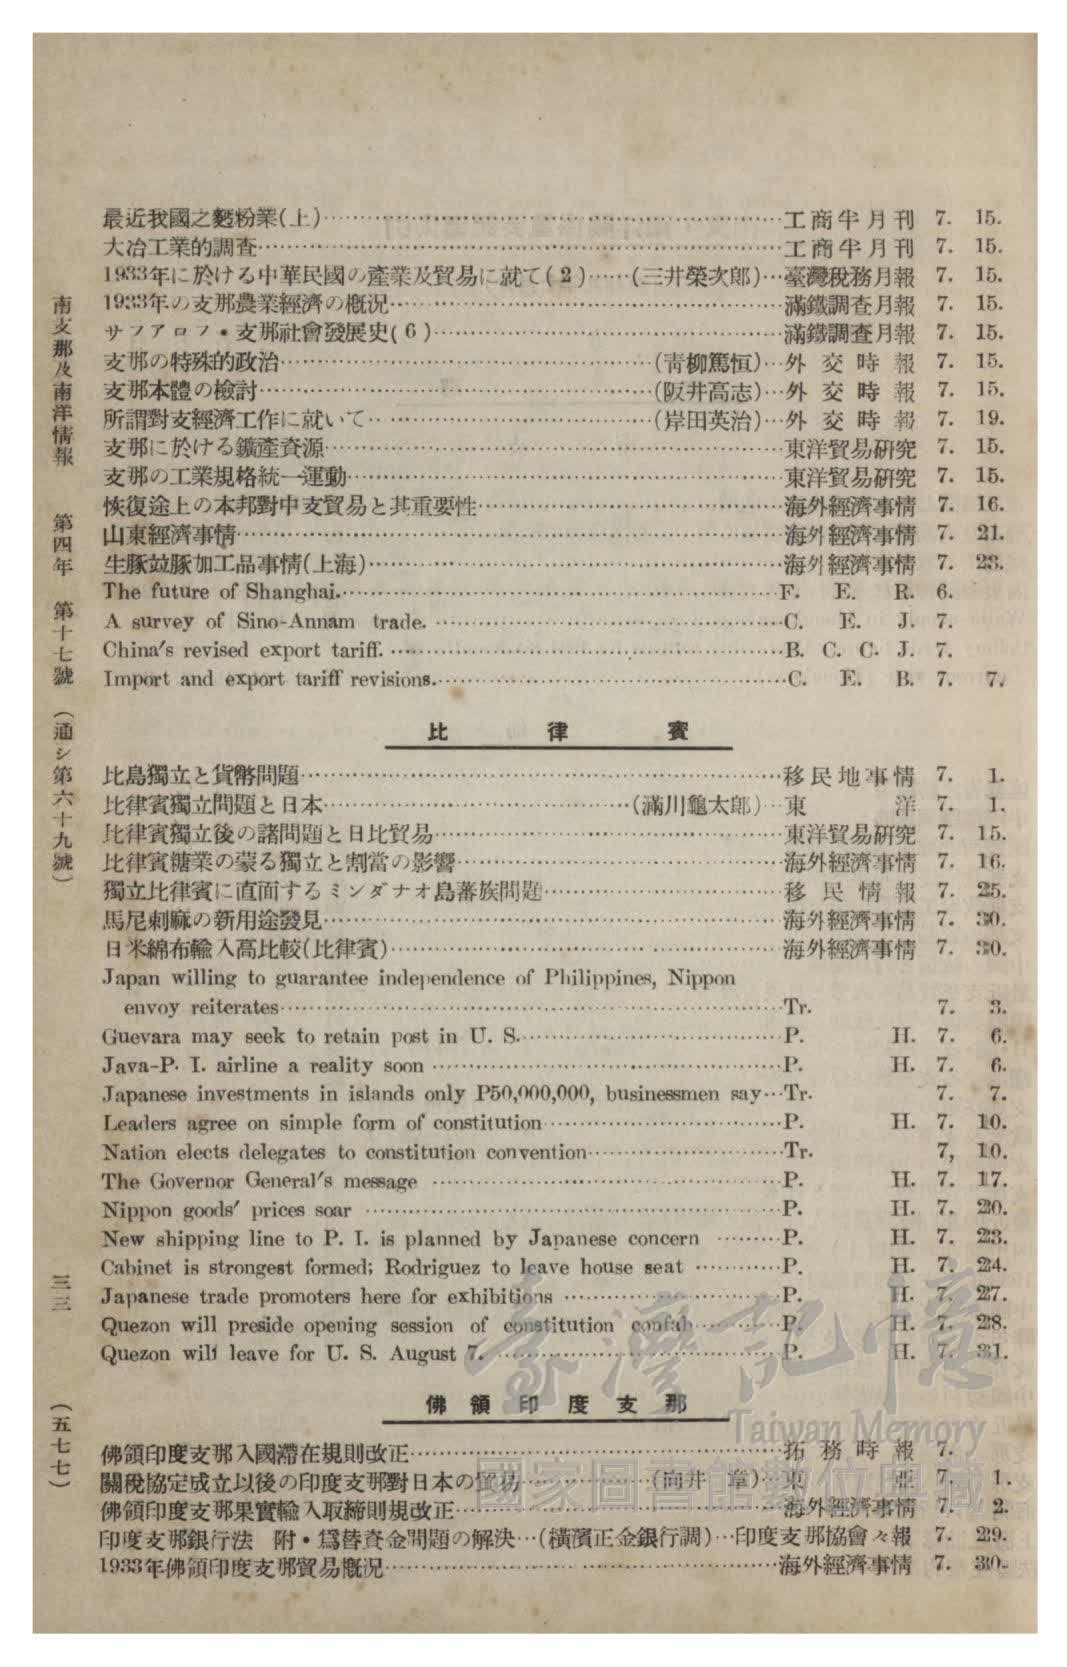 最近我國之麪粉業(上)……工商半月刊 7. 15.
大冶工業的調查……工商半月刊 7. 15.
1933年に於ける中華民國の產業及貿易に就て(2)……(三井榮次郎)…臺灣稅務月報 7. 15.
1933年の支那農業經濟の槪況……滿鐵調查月報 7. 15.
サフアロフ・支那社會發展史(6)……滿鐵調查月報 7. 15.
支那の特殊的政治……(靑柳篤恒)…外交時報 7. 15.
支那本體の檢討……(阪井高志)…外交時報 7. 15.
所謂對支經濟工作に就いて……(岸田英治)…外交時報 7. 19.
支那に於ける鑛產資源……東洋貿易硏究 7. 15.
支那の工業規格統一運動……東洋貿易硏究 7. 15.
恢復途上の本邦對中支貿易と其重要性……海外經濟事情 7. 16.
山東經濟事情……海外經濟事情 7. 21.
生豚竝豚加工品事情(上海)……海外經濟事情 7. 23.
The future of Shanghai.……F. E. R. 6.
A survey of Sino-Annam trade.……C. E. J. 7.
China's revised export tariff.……B. C. C. J. 7.
Import and export tariff revisions.……C. E. B. 7. 7.
比律賓
比島獨立と貨幣問題……移民地事情 7. 1.
比律賓獨立問題と日本……(滿川龜太郎)…東洋 7. 1.
比律賓獨立後の諸問題と日比貿易……東洋貿易硏究 7. 15.
比律賓糖業の蒙る獨立と割當の影響……海外經濟事情 7. 16.
獨立比律賓に直面するミンダナオ島蕃族問題……移民情報 7. 25.
馬尼刺麻の新用途發見……海外經濟事情 7. 30.
日米綿布輸入高比較(比律賓)……海外經濟事情 7. 30.
Japan willing to guarantee independence of Philippines, Nippon
envoy reiterates……Tr. 7. 3.
Guevara may seek to retain post in U. S.……P. H. 7. 6.
Java-P. I. airline a reality soon……P. H. 7. 6.
Japanese investments in islands only P50,000,000, businessmen say…Tr. 7. 7.
Leaders agree on simple form of constitution……P. H. 7. 10.
Nation elects delegates to constitution convention……Tr. 7, 10.
The Governor General's message……P. H. 7. 17.
Nippon goods' prices soar……P. H. 7. 20.
New shipping line to P. I. is planned by Japanese concern……P. H. 7. 23.
Cabinet is strongest formed; Rodriguez to leave house seat……P. H. 7. 24.
Japanese trade promoters here for exhibitions……P. H. 7. 27.
Quezon will preside opening session of constitution confab……P. H. 7. 28.
Quezon will leave for U. S. August 7.……P. H. 7. 31.
佛領印度支那
佛領印度支那入國滯在規則改正……拓務時報 7.
關稅協定成立以後の印度支那對日本の貿易……(向井章)…東亞 7. 1.
佛領印度支那果實輸入取締則規改正……海外經濟事情 7. 2.
印度支那銀行法 附・爲替資金問題の解決…(橫濱正金銀行調)…印度支那協會々報 7. 29.
1933年佛領印度支那貿易槪況……海外經濟事情 7. 30.
南支那及南洋情報 第四年 第十七號 (通シ第六十九號) 三三 (五七七)
臺灣記憶
Taiwan Memory
國家圖書館數位典藏